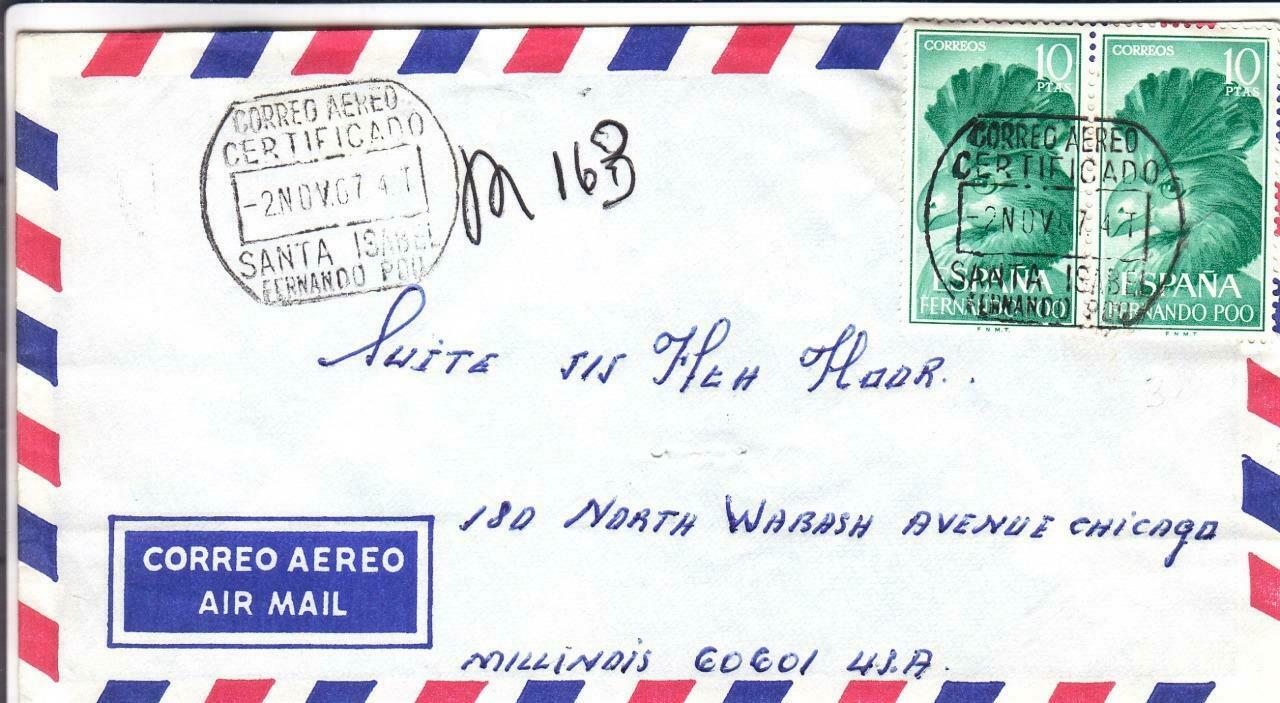 CORREO AEREO
CERTIFICADO
-2 NOV.67 4.T
SANTA ISABEL
FERNANDO POO
M 163
CORREOS 10 PTAS
ESPAÑA
FERNANDO POO
F.N.M.T.
CORREOS 10 PTAS
ESPAÑA
FERNANDO POO
F.N.M.T.
CORREO AEREO
CERTIFICADO
-2 NOV 67 4.T
SANTA ISABEL
FERNANDO POO
SUITE 515 FLEH FLOOR..
180 NORTH WABASH AVENUE CHICAGO
MILLINOIS 60601 U.S.A.
CORREO AEREO
AIR MAIL